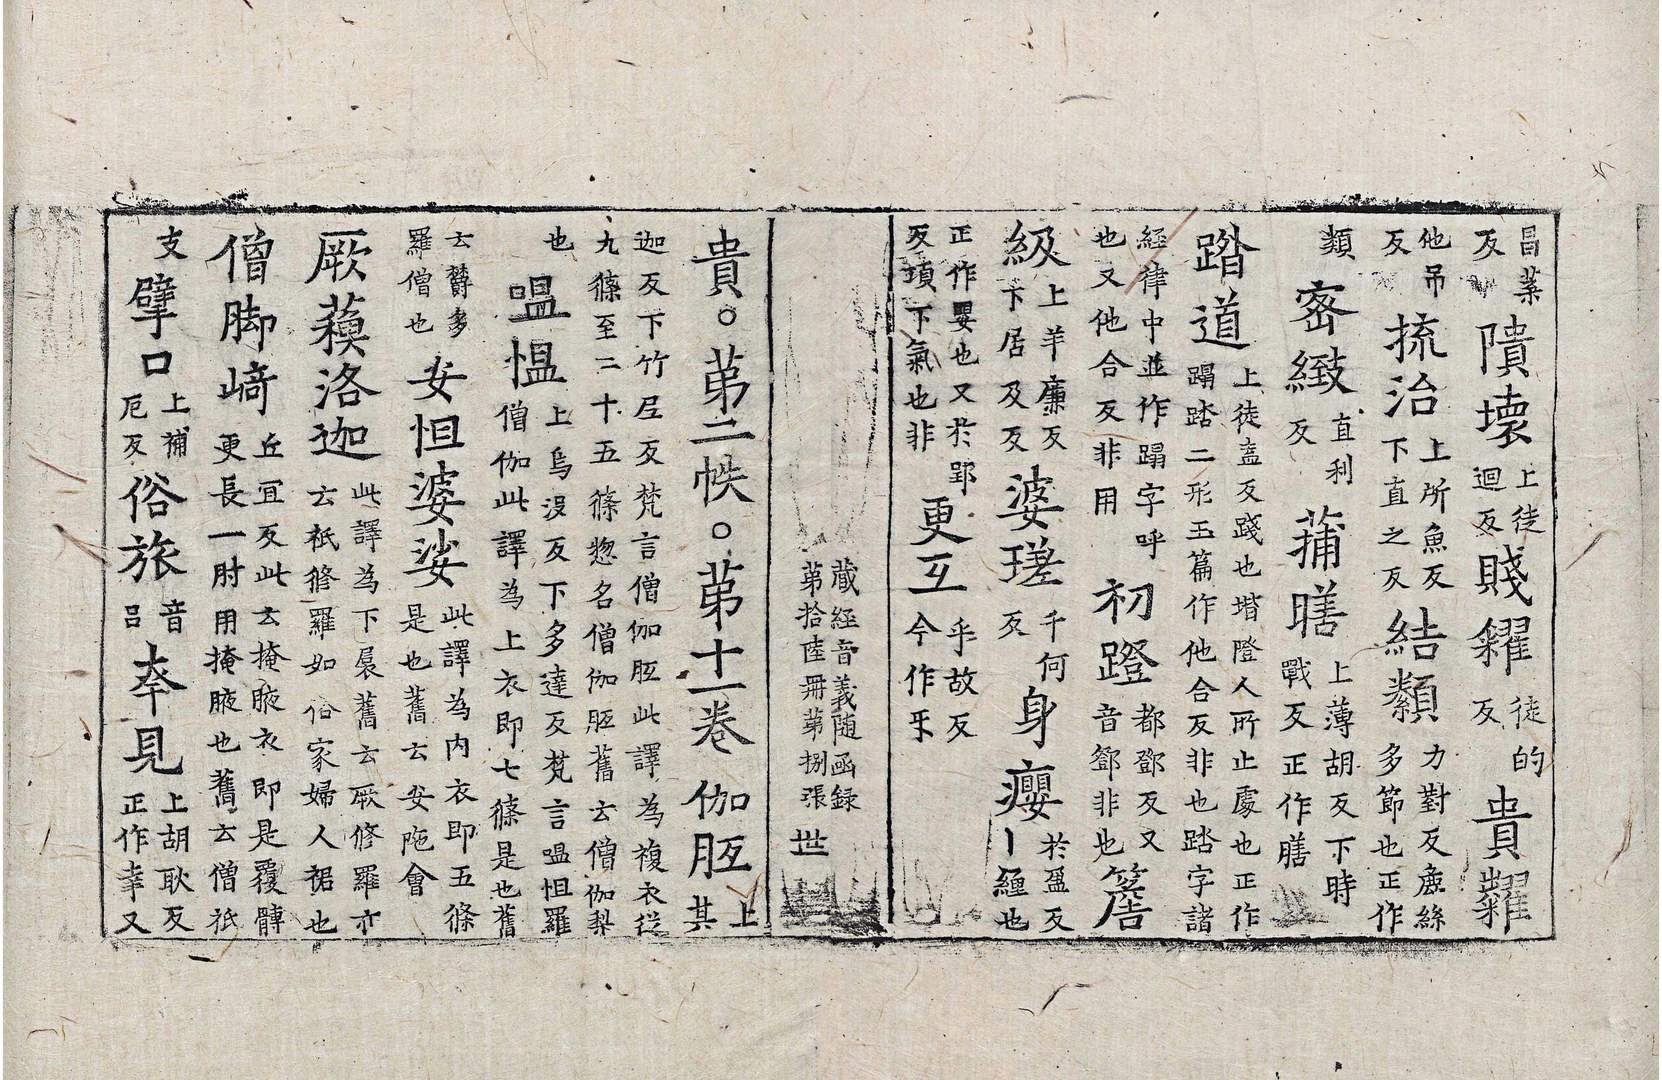 昌葉反隤壞上徒迴反賤糴徒的反貴糶
他吊反梳治上所魚反下直之反結纇力對反麁絲多節也正作
類密緻直利反蒱瞎上薄胡反下時戰反正作膳
蹹道上徒盍反踐也堦隥人所止處也正作蹋踏二形玉篇作他合反非也踏字諸
經律中並作蹋字呼也又他合反非用初蹬都鄧反又音鄧非也簷
級上羊廉反下居及反婆瑳千何反身癭於盈反丨纏也
正作嬰也又於郢反項下氣也非更互乎故反今作㸦
藏經音義随函録
第拾陸冊第捌張 世
貴。第二帙。第十一卷 伽胝上其
迦反下竹尼反梵言僧伽胝此譯為複衣從九條至二十五條惣名僧伽胝舊云僧伽梨
也嗢愠上烏沒反下多達反梵言嗢怛羅僧伽此譯為上衣即七條是也舊
云欝多羅僧也安怛婆娑此譯為内衣即五條是也舊云安陁會
厥蘇洛迦此譯為下裙舊云厥修羅亦云祇修羅如俗家婦人裙也
僧脚崎丘宜反此云掩腋衣即是覆髆更長一肘用掩腋也舊云僧祇
支擘口上補厄反俗旅音吕𡴘見上胡耿反正作幸又